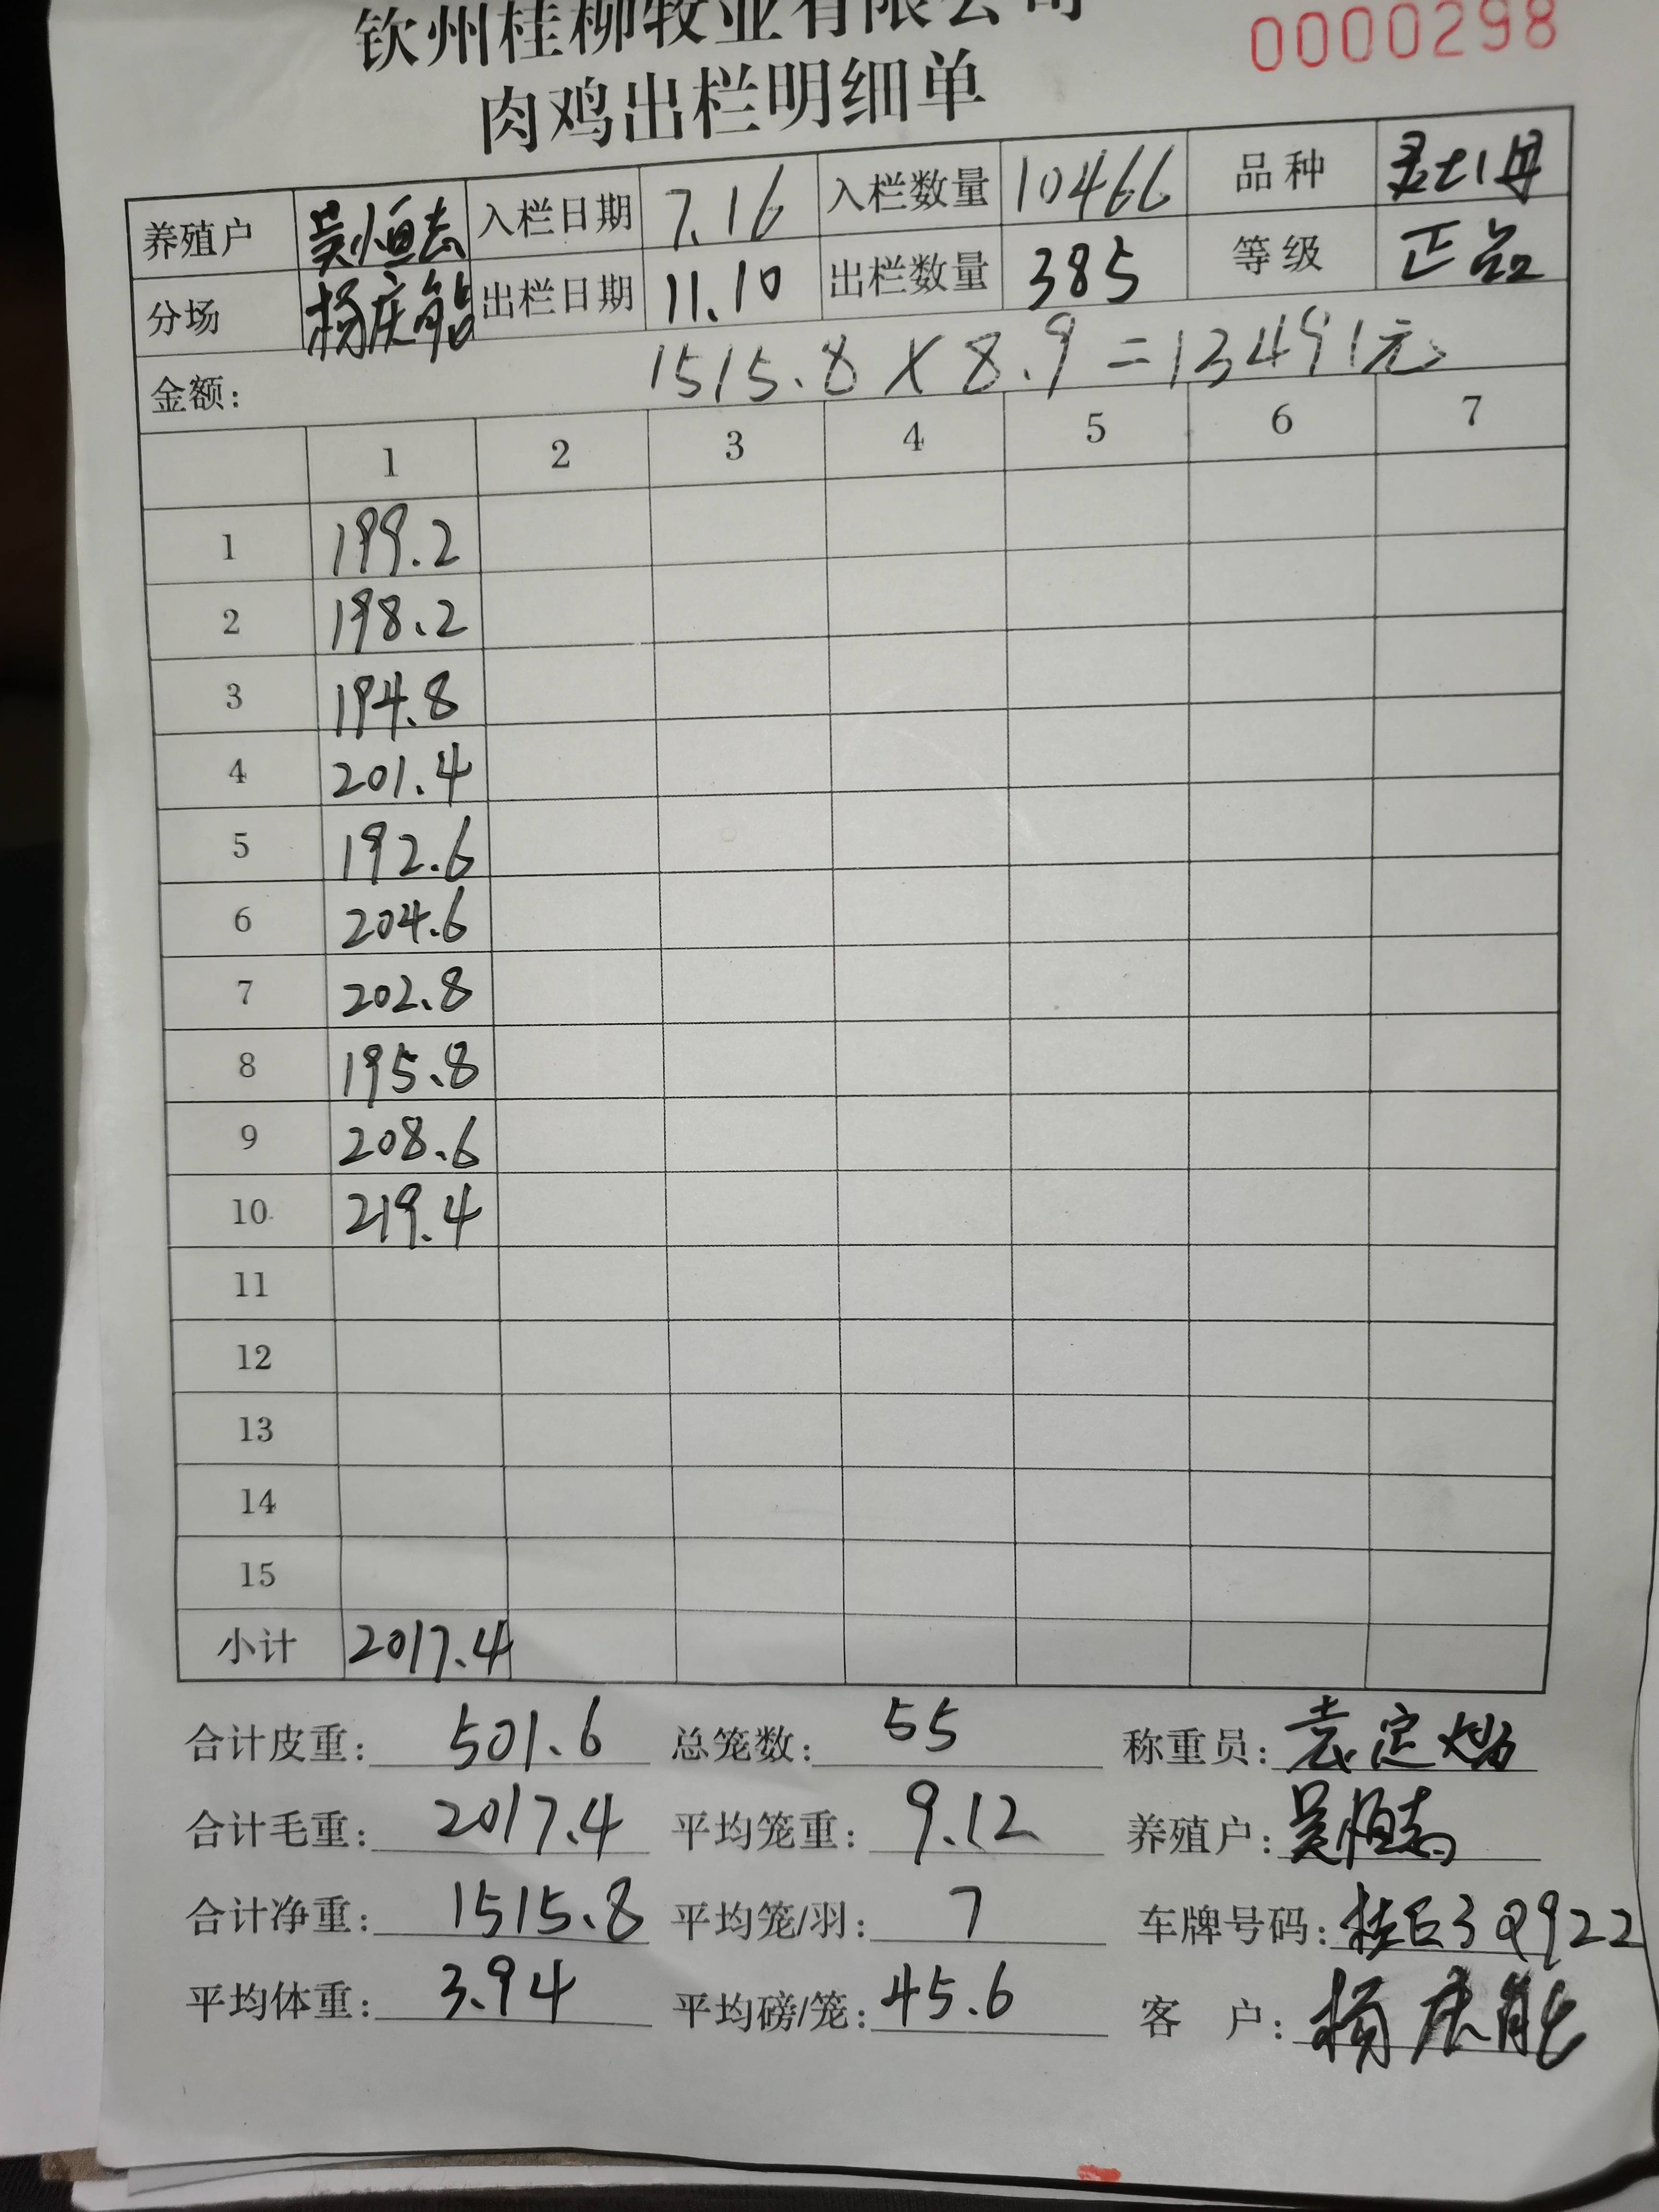 钦州桂柳牧业有限公司
0000298
肉鸡出栏明细单
养殖户 吴恒志 入栏日期 7.16 入栏数量 10466 品种
分场 杨庆能 出栏日期 11.10 出栏数量 385 等级 正品
金额: 1515.8 X 8.9 = 13491元
1 2 3 4 5 6 7
1 199.2
2 198.2
3 194.8
4 201.4
5 192.6
6 204.6
7 202.8
8 195.8
9 208.6
10 219.4
11
12
13
14
15
小计 2017.4
合计皮重: 501.6 总笼数: 55 称重员: 袁定
合计毛重: 2017.4 平均笼重: 9.12 养殖户: 吴恒志
合计净重: 1515.8 平均笼/羽: 7 车牌号码: 桂E3Q922
平均体重: 3.94 平均磅/笼: 45.6 客户: 杨庆能